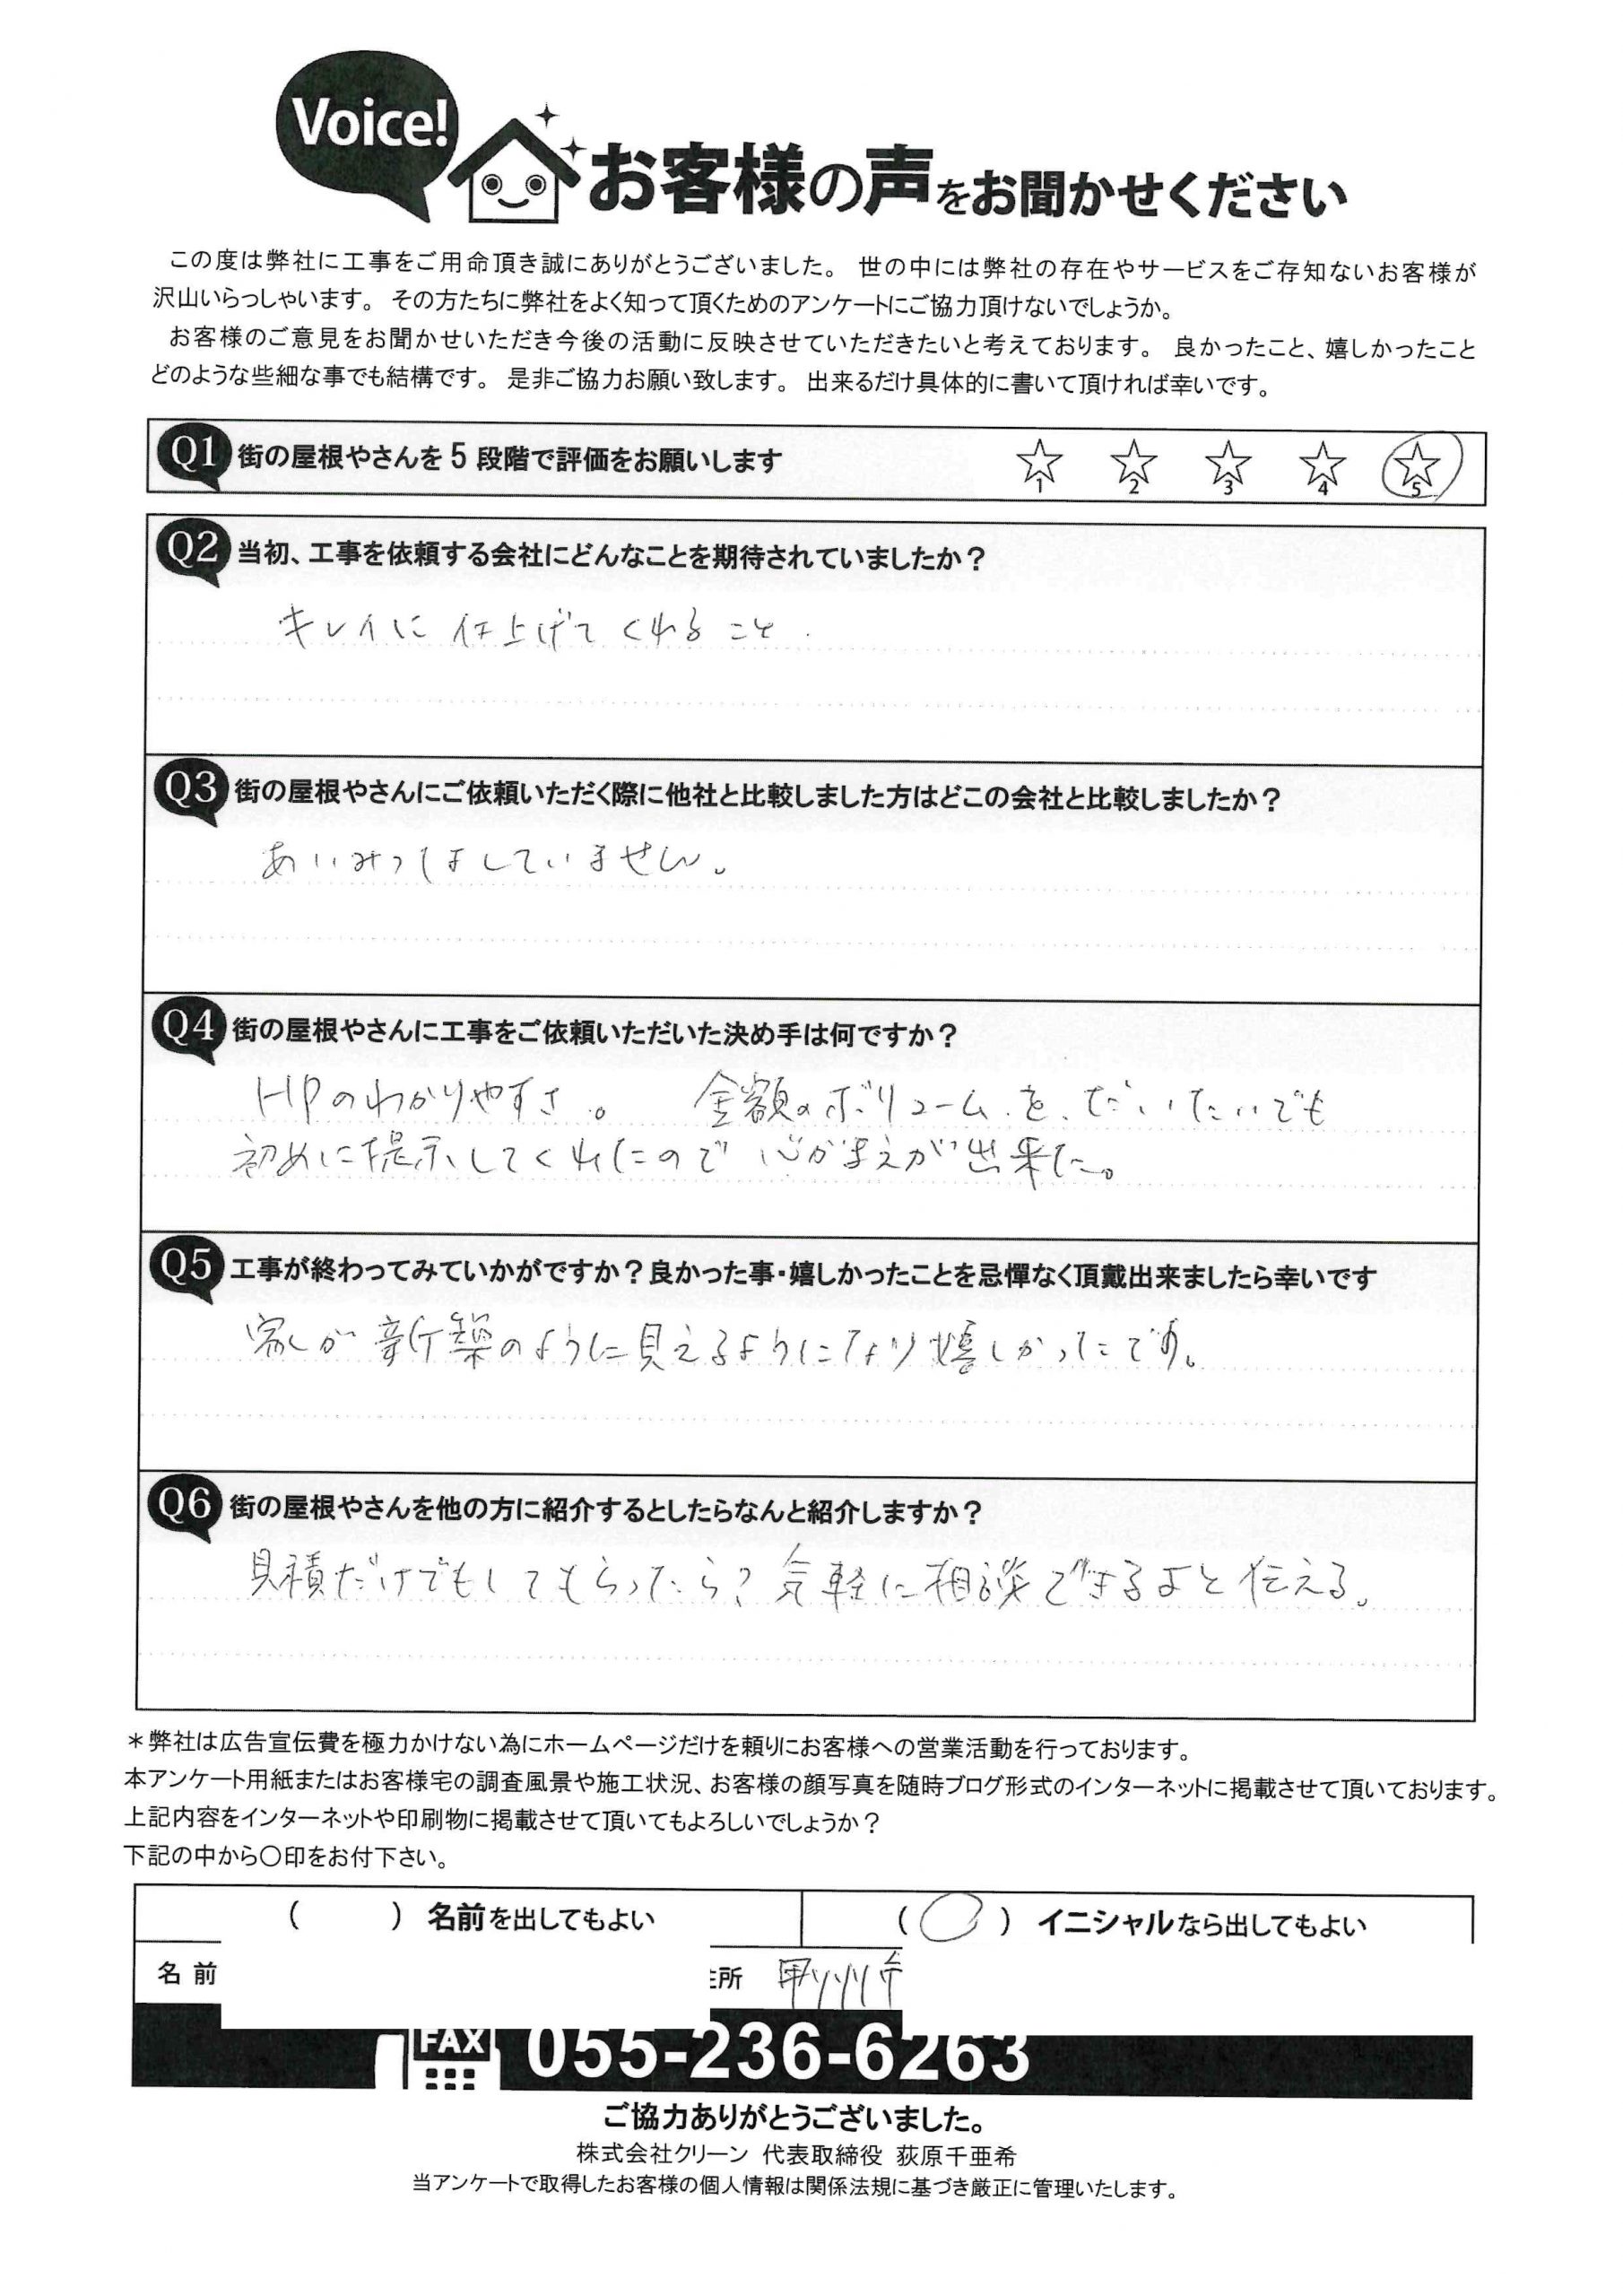 Voice!
お客様の声をお聞かせください
この度は弊社に工事をご用命頂き誠にありがとうございました。 世の中には弊社の存在やサービスをご存知ないお客様が
沢山いらっしゃいます。 その方たちに弊社をよく知って頂くためのアンケートにご協力頂けないでしょうか。
お客様のご意見をお聞かせいただき今後の活動に反映させていただきたいと考えております。 良かったこと、嬉しかったこと
どのような些細な事でも結構です。 是非ご協力お願い致します。 出来るだけ具体的に書いて頂ければ幸いです。
Q1 街の屋根やさんを5段階で評価をお願いします ☆1 ☆2 ☆3 ☆4 ☆5
Q2 当初、工事を依頼する会社にどんなことを期待されていましたか？
キレイに仕上げてくれること.
Q3 街の屋根やさんにご依頼いただく際に他社と比較しました方はどこの会社と比較しましたか？
あいみつはしていません。
Q4 街の屋根やさんに工事をご依頼いただいた決め手は何ですか？
HPのわかりやすさ。 金額のボリュームを、だいたいでも
初めに提示してくれたので心がまえが出来た。
Q5 工事が終わってみていかがですか？良かった事・嬉しかったことを忌憚なく頂戴出来ましたら幸いです
家が新築のように見えるようになり嬉しかったです。
Q6 街の屋根やさんを他の方に紹介するとしたらなんと紹介しますか？
見積だけでもしてもらったら？気軽に相談できるよと伝える。
＊弊社は広告宣伝費を極力かけない為にホームページだけを頼りにお客様への営業活動を行っております。
本アンケート用紙またはお客様宅の調査風景や施工状況、お客様の顔写真を随時ブログ形式のインターネットに掲載させて頂いております。
上記内容をインターネットや印刷物に掲載させて頂いてもよろしいでしょうか？
下記の中から〇印をお付下さい。
（ ）名前を出してもよい （〇）イニシャルなら出してもよい
名 前 住所 甲州市
FAX 055-236-6263
ご協力ありがとうございました。
株式会社クリーン 代表取締役 荻原千亜希
当アンケートで取得したお客様の個人情報は関係法規に基づき厳正に管理いたします。